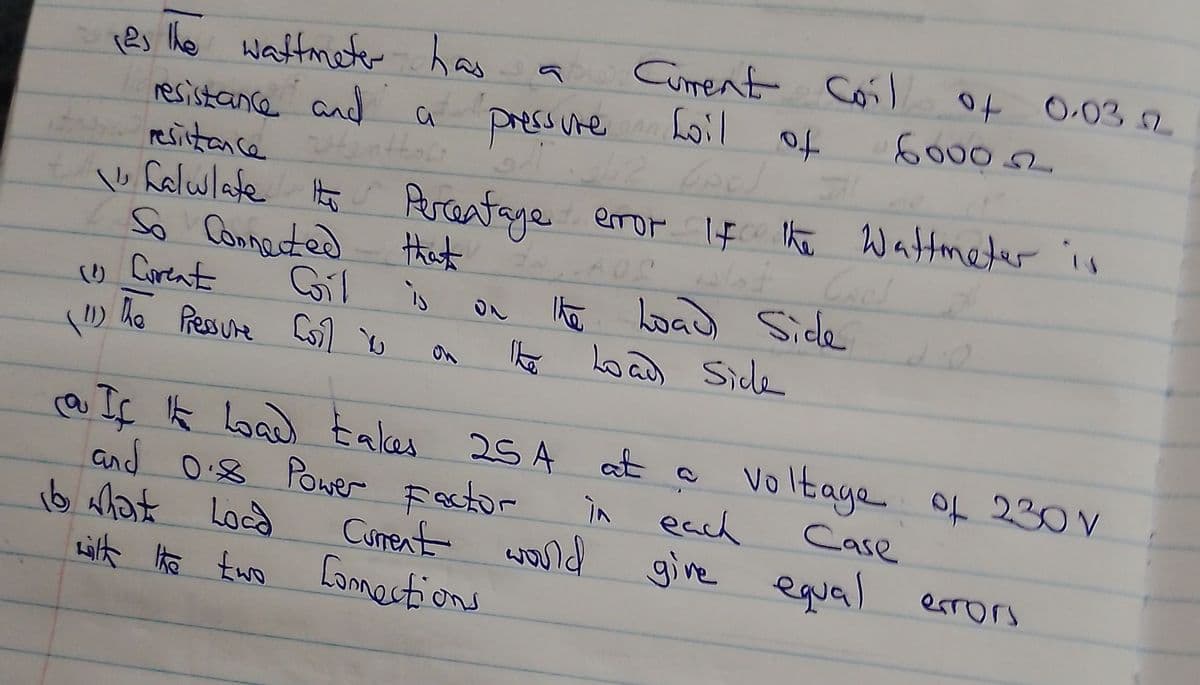 (2) The wattmeter has a Current Coil of 0.03 Ω
resistance and a pressure Coil of 6000 Ω
resistance
(1) Calculate the Percentage error If the Wattmeter is
So Connected that
(1) Curent Coil is on the Load Side
(11) The Pressure Coil is on the Load Side
(a If the Load takes 25 A at a Voltage of 230 V
and 0.8 Power Factor in each Case
(b What Load Current would give equal errors
with the two Connections